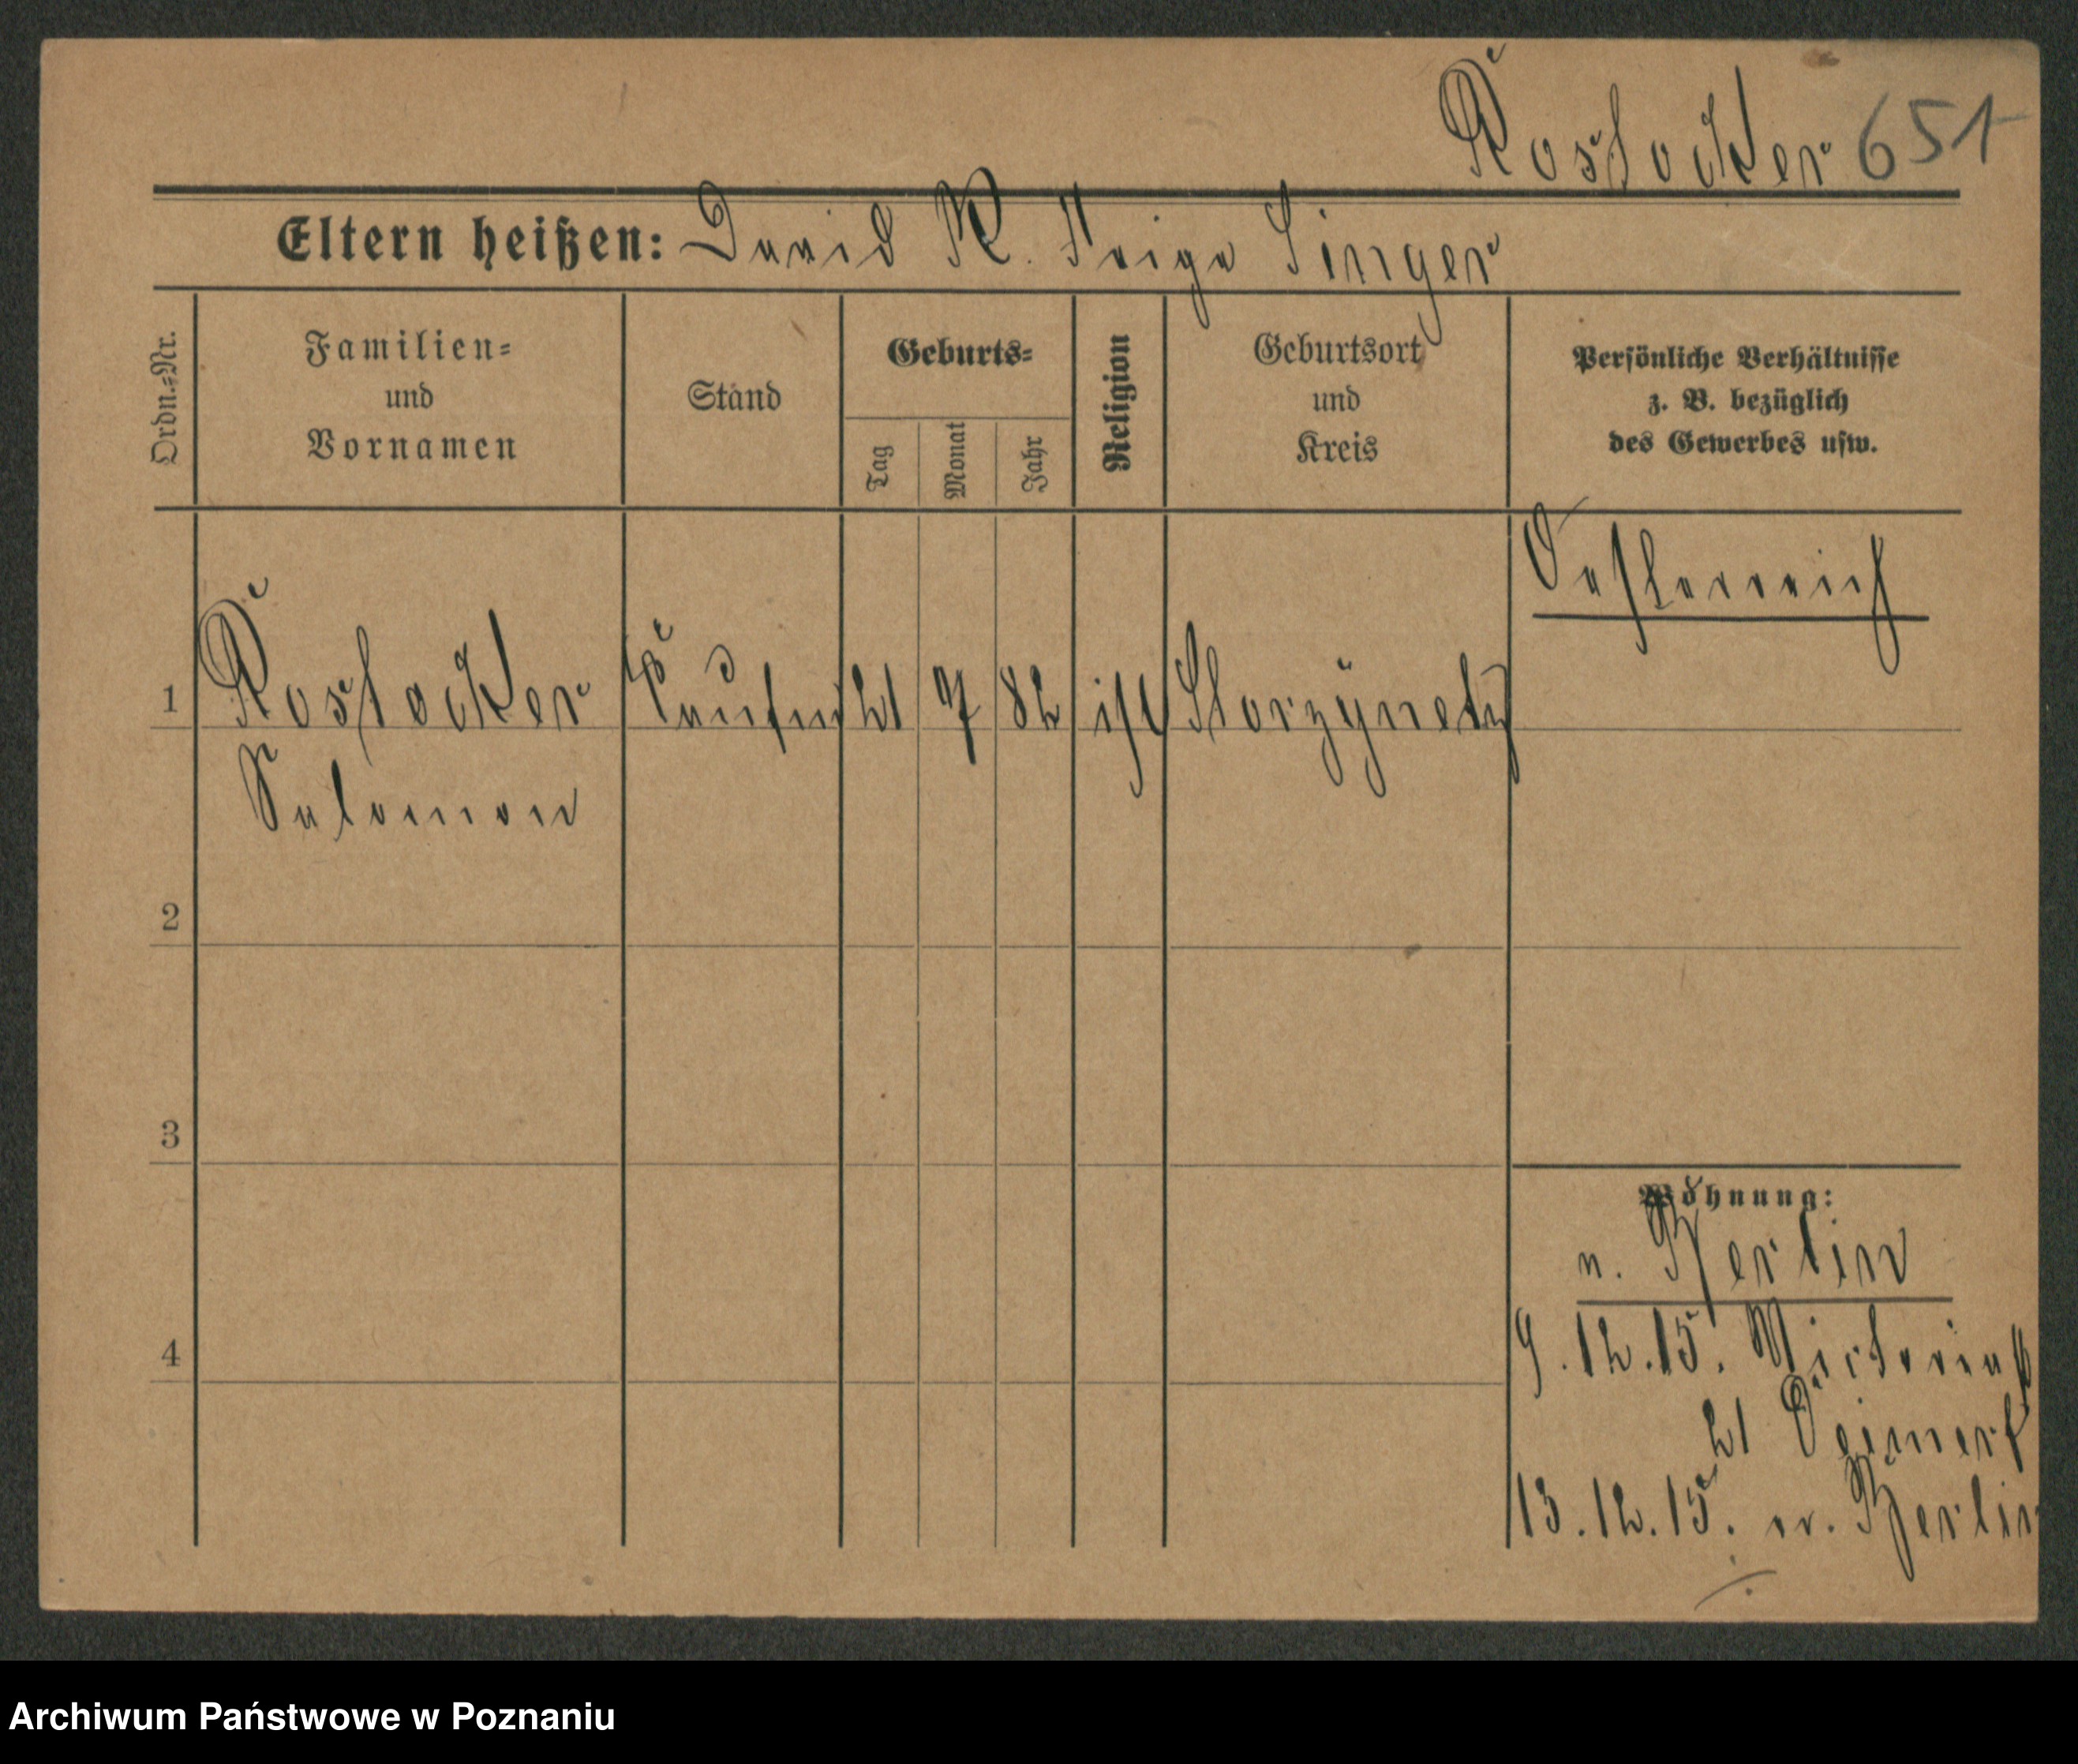 Rostocker 651
Eltern heißen: David R. Feiga Singer
Ordn.-Nr.
Familien-
und
Vornamen
Stand
Geburts-
Tag
Monat
Jahr
Religion
Geburtsort
und
Kreis
Persönliche Verhältnisse
z. B. bezüglich
des Gewerbes usw.
Oesterreich
1 Rostocker Kaufm 21 7 82 isr Storzÿnetz
Salomon
2
3
4
Wohnung:
n. Berlin
9.12.15. Victoriastr
21
13.12.15. n. Berlin
Archiwum Państwowe w Poznaniu